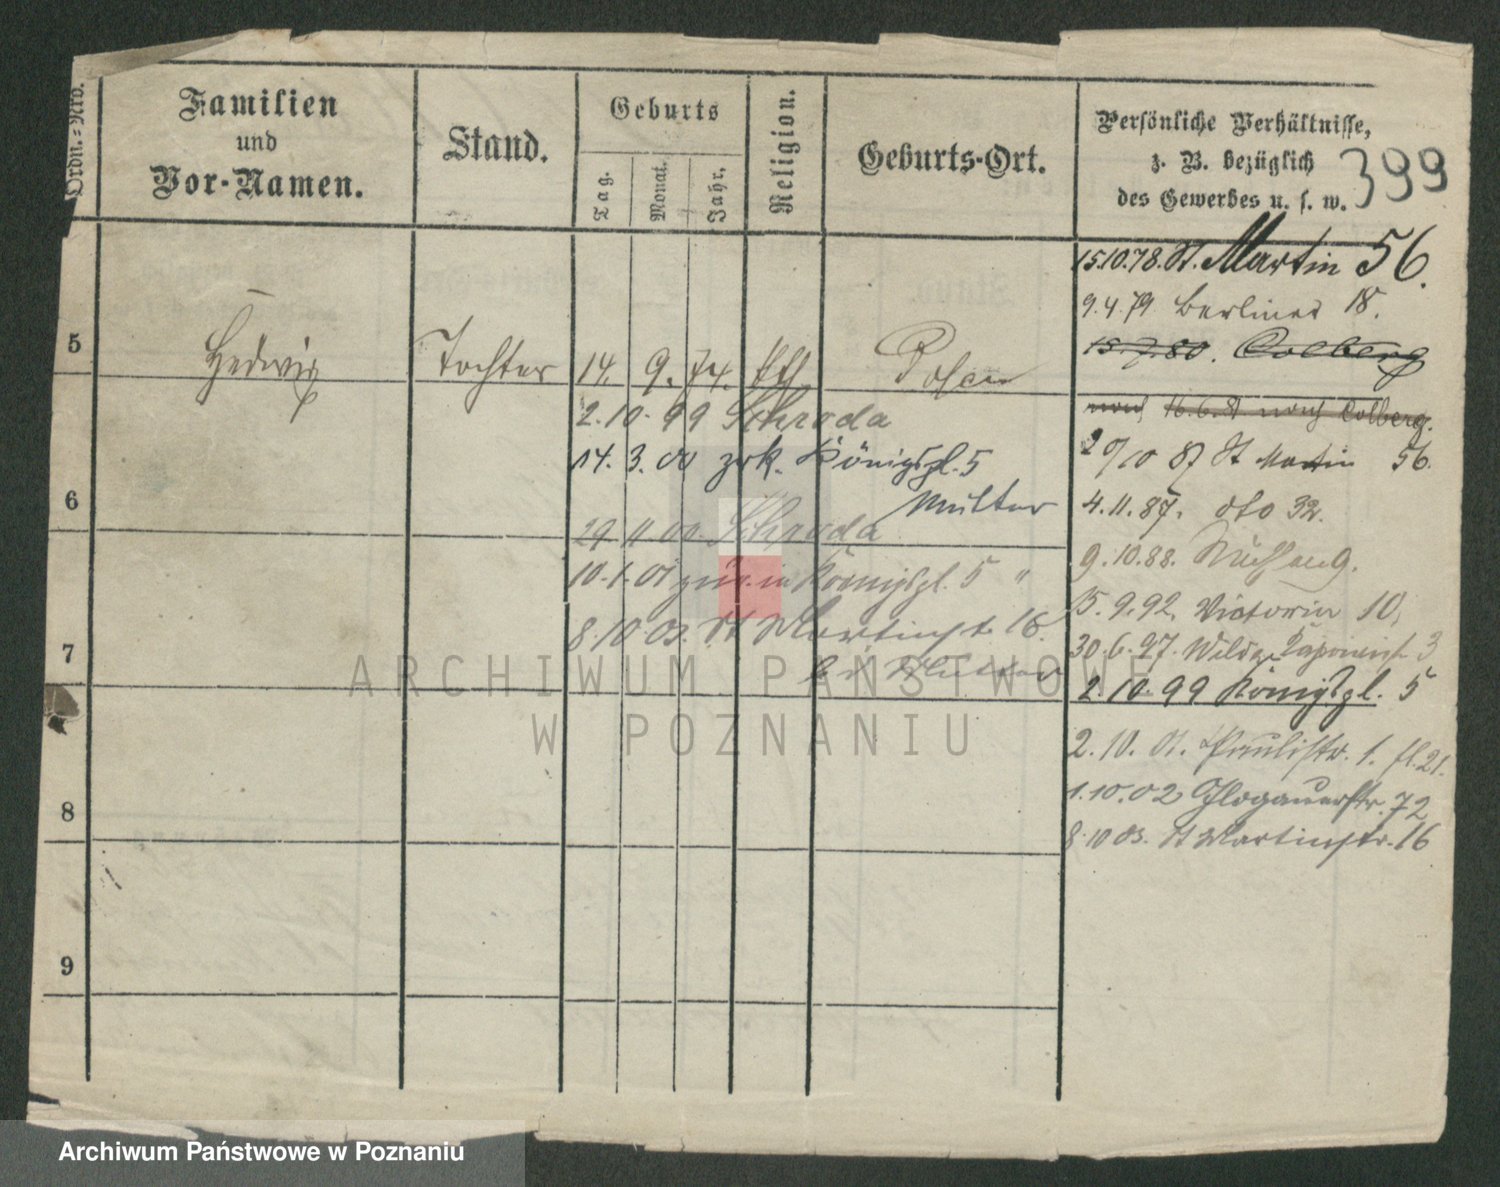 Ordn.-Nro.
Familien
und
Vor-Namen.
Stand.
Geburts
Tag.
Monat.
Jahr.
Religion.
Geburts-Ort.
Persönliche Verhältnisse,
z. B. bezüglich
des Gewerbes u. s. w.
399
5
Hedwig
Tochter
14. 9. 74.
Posen
2. 10. 99 Schroda
14. 3. 00 zrk. Königspl. 5
Mutter
29 11 00 Schroda
10. 1. 01 in Königspl. 5 "
8. 10 03. St Martinstr. 16.
bei Mutter
15.10.78. St. Martin 56.
9.4.79 Berliner 18.
15.7.80. Colberg
nach 16.6. nach Colberg.
20/10 87 St Martin 56.
4.11.87. dto 32.
9.10.88. Mühlen 9.
5.9.92. Victoria 10,
30.6.97. Wilda 3
2.10.99 Königspl. 5
2.10. 01. Paulistr. 1.
1.10.02 Glogauerstr. 72
8.10 03. St Martinstr. 16
6
7
8
9
ARCHIWUM PAŃSTWOWE
W POZNANIU
Archiwum Państwowe w Poznaniu